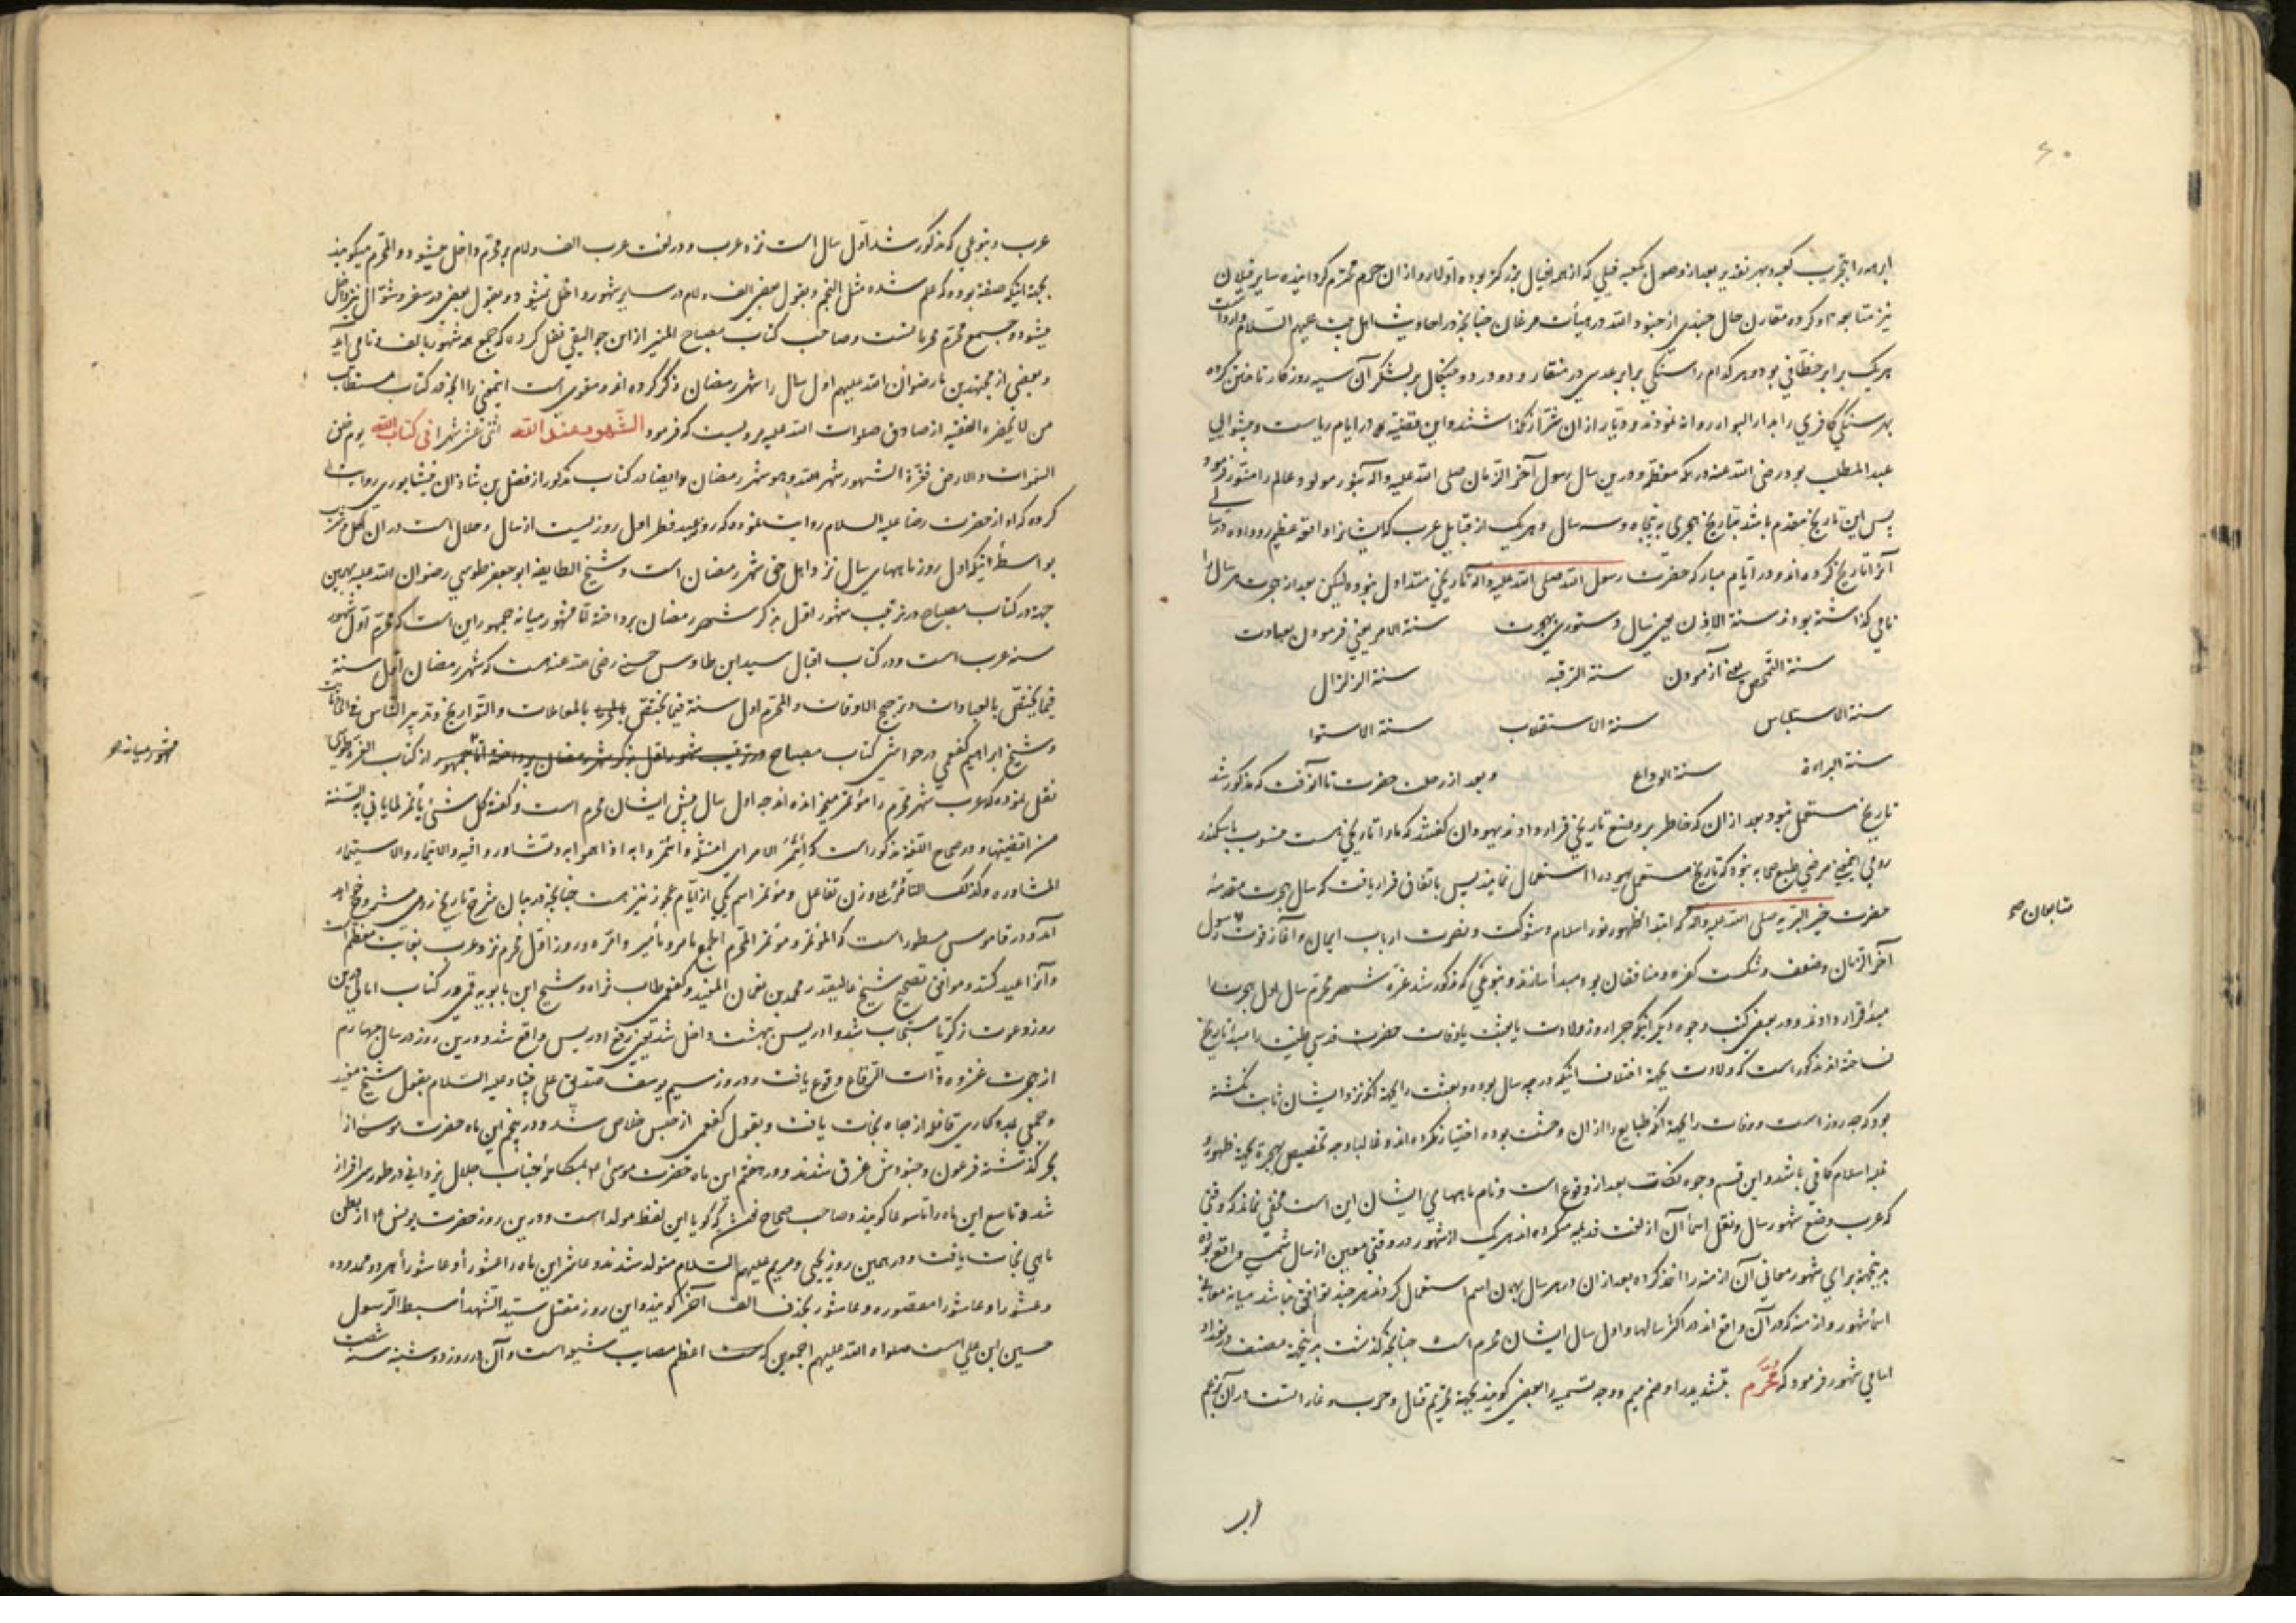 ۶۰
ابرهه را بتخریب کعبه و بهر تقدیر بعد از وصول بکعبه فیلی که از همه افیال بزرکتر بوده اولا رو از ان حرم محترم کردانیده سایر فیلان
نیز متابعه او کرده مقارن حال جندی از جنود الله در هیأت مرغان جنانجه در احادیث اهل بیت علیهم السلام وارد است
هریک برابر خطافی بود و هر کدام را سنکی برابر عدسی در منقار و دو در دو جنکال بر لشکر آن سیه روزکار تاختن کرده
بهر سنکی کافری را بدار البوار روانه نمودند و دیار از ان نکذاشتند و این قضیه در ایام ریاست و پیشوایی
عبد المطلب بود رضی الله عنه در مکه معظمه و درین سال رسول آخر الزمان صلی الله علیه واله بنور مولود عالم را منور فرمود
پس این تاریخ مقدم باشد بتاریخ هجری به پنجاه و سه سال و هریک از قبایل عرب که ایشانرا واقعه عظیم رو داده در سالی
آنرا تاریخ کرده اند و در ایام مبارکه حضرت رسول الله صلی الله علیه واله تاریخی متداول نبوده لیکن بعد از هجرت هر سال را
نامی کذاشته بودند سنة الاذن یعنی سال دستوری بهجرت سنة الامر یعنی فرمودن بعبادت
سنة التمحیص یعنی آزمودن سنة الترفیه سنة الزلزال
سنة الاستیناس سنة الاستغلاب سنة الاستوا
سنة البراءة سنة الوداع و بعد از رحلت حضرت تا آنوقت که مذکور شد
تاریخ مستعمل نبود بعد از ان که خاطر بر وضع تاریخی قرار دادند یهودان کفتند که ما را تاریخیست منسوب باسکندر
رومی اینمعنی مرضی طبع صحابه نبود که تاریخ مستعمل یهود را استعمال نمایند پس باتفاق قرار یافت که سال هجرت مقدسه
حضرت خیر البریه صلی الله علیه واله که ابتدا ظهور نور اسلام و شوکت و نصرت ارباب ایمان و آغاز قوت رسول
متابعان صح
آخر الزمان و ضعف و شکست کفره و منافقان بود مبدأ سازند و بنوعی که مذکور شد غرّة شهر محرم سال اول هجرت را
مبدأ قرار دادند و در بعضی کتب وجوه دیکر اینکه جرا روز ولادت یا بعثت یا وفات حضرت قدسی طینت را مبدأ تاریخ
نساخته اند مذکور است که ولادت بجهة اختلاف اینکه در جه سال بوده و بعثت را بجهة انکه نزد ایشان ثابت نکشته
بود که جه روز است و وفات را بجهة انکه طبایع را از ان وحشت بوده اختیار نکرده اند و غالبا وجه تخصیص بهجرة بجهة ظهور و
غلبه اسلام کافی باشد و این قسم وجوه نکات بعد از وقوع است و نام ماههای ایشان این است مخفی نماند که وقتی
که عرب وضع شهور سال و نقل اسما آن از لغت قدیمه میکرده اند هریک از شهور در وقتی معین از سال شمسی واقع بوده
بدینجهة برای شهور معانی آن ازمنه را اخذ کرده بعد از ان در هر سال بهمان اسم استعمال کردند هر جند توافقی نباشد میانه معانی
اسما شهور و ازمنه که در آن واقع اند در اکثر سالها و اول سال ایشان محرم است جنانجه کذشت بدینجهة مصنف در تعداد
اسامی شهور فرمود که مُحَرَّم بتشدید را و ضم میم و وجه تسمیه را بعضی کویند بجهة تحریم قتال و حرب و غارات است در آن بزعم
عرب و بنوعی که مذکور شد اول سال است نزد عرب و در لغت عرب الف و لام بر محرم داخل میشود و المحرم میکویند
بجهة اینکه صفة بوده که علم شده مثل النجم و بقول بعضی الف و لام در سایر شهور داخل نمیشود و بقول بعضی در صفر و شوال نیز داخل
میشود و جمع محرم محرمات است و صاحب کتاب مصباح المنیر از ابن جوالیقی نقل کرده که جمع همه شهور بالف و تا می آید
و بعضی از مجتهدین ما رضوان الله علیهم اول سال را شهر رمضان ذکر کرده اند و مقوی است اینمعنی را انجه در کتاب مستطاب
من لا یحضره الفقیه از صادق صلوات الله علیه مرویست که فرمود الشهور عند الله اثنی عشر شهرا فی کتاب الله یوم خلق
السموات والارض فغرّة الشهور شهر الله وهو شهر رمضان و ایضا در کتاب مذکور از فضل بن شاذان نیشابوری روایت
کرده که او از حضرت رضا علیه السلام روایت نموده که روز عید فطر اول روزیست از سال و حلال است در آن اکل و شرب
بواسطه اینکه اول روز ماههای سال نزد اهل حق شهر رمضان است و شیخ الطایفه ابو جعفر طوسی رضوان الله علیه بهمین
جهة در کتاب مصباح در ترتیب شهور اول بذکر شهر رمضان پرداخته اما مشهور میانه جمهور این است که محرم اول شهور
سنه عرب است و در کتاب اقبال سید ابن طاوس حسنی رضی الله عنه است که شهر رمضان اول سنة
فیما یختص بالعبادات و ترجیح الاوقات و المحرم اول سنة فیما یختص بالمعاملات و التواریخ و تدبیر الناس
و شیخ ابراهیم کفعمی در حواشی کتاب مصباح در ترتیب شهور اول بذکر شهر رمضان پرداخته اما جمهور از کتاب
مشهور میانه صح
نقل نموده که عرب شهر محرم را مؤتمر میخوانده اند جه اول سال پیش ایشان محرم است و کفته کل شئ یأتمر لما یاتی به السّنة
من اقضیتها و در صحاح اللغة مذکور است که ائتمر الامر ای امتثله و ائتمروا به اذا همّوا به و تشاوروا فیه والایتمار والاستیمار
المشاوره و کذلک التآمر علی وزن تفاعل و مؤتمر اسم یکی از ایام عجوز نیز هست جنانجه در بیان شرح تاریخ رومی مشروح خواهد
آمد و در قاموس مسطور است که المؤتمر و مؤتمر المحرم الجمع مامر و مآمیر و روز اول محرم نزد عرب بغایت معظم است
و آنرا عید کنند و موافق تصحیح شیخ عالیقدر محمد بن نعمان المفید و کفعمی طاب ثراه و شیخ ابن بابویه قمی در کتاب امالی درین
روز دعوت زکریا مستجاب شد و ادریس ببهشت داخل شد یعنی رفع ادریس واقع شد و درین روز در سال جهارم
از هجرت غزوه ذات الرقاع وقوع یافت و در روز سیم یوسف صدیق علی نبینا و علیه السلام بقول شیخ مفید
و جمعی بمدد کاری قافله از جاه نجات یافت و بقول کفعمی از حبس خلاص شد و در پنجم این ماه حضرت موسی از
بحر کذشته فرعون و جنودش غرق شدند و در هفتم این ماه حضرت موسی بمکالمه جناب جلال یزدانی در طور سرافراز
شد و تاسع این ماه را تاسوعا کویند و صاحب صحاح کفته که کویا این لفظ مولد است و درین روز حضرت یونس از بطن
ماهی نجات یافت و در همین روز یحیی و مریم علیهم السلام متولد شدند و عاشر این ماه را عشورأ و عاشورأ بهر دو ممدوده
و عشورا و عاشورا مقصوره و عاشور بحذف الف آخر کویند و این روز مقتل سید الشهدأ سبط الرسول
حسین ابن علی است صلواة الله علیهم اجمعین که اعظم مصایب شیعه است و آن در روز دوشنبه سنه شصت
ابر